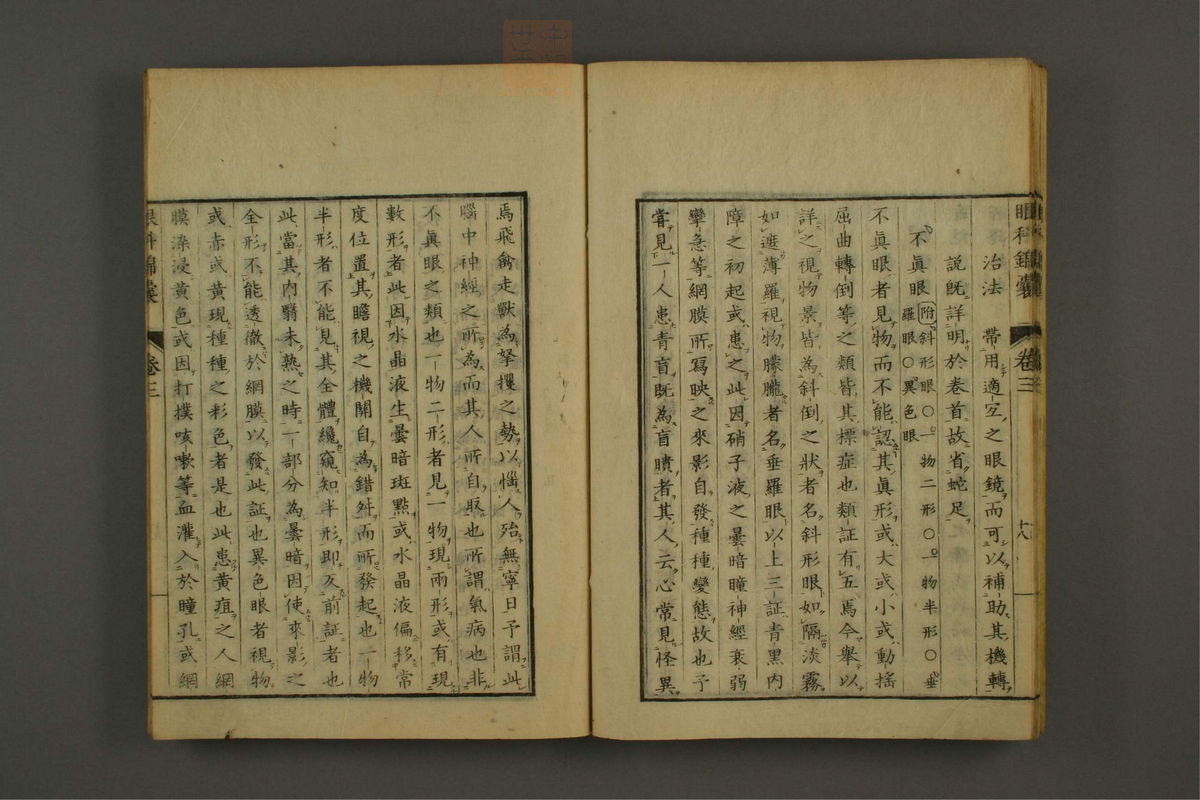 眼科錦囊 卷三 十八
治法 帶用適宜之眼鏡而可以補助其機轉
說旣詳明於卷首故省蛇足
不眞眼 附斜形眼○一物二形○一物半形○垂
羅眼○異色眼
不眞眼者見物而不能認其眞形或大或小或動搖
屈曲轉倒等之類皆其標症也類証有五焉今舉以
詳之視物景皆為斜倒之狀者名斜形眼如隔淡霧
如遮薄羅視物朦朧者名垂羅眼以上三証青黑内
障之初起或患之此因硝子液之曇暗瞳神經衰弱
攣急等網膜所寫映之來影自發種種變態故也予
嘗見一人患青盲既為盲瞆者其人云心常見怪異
焉飛禽走獸為拏攫之勢以惱人殆無寧日予謂此
腦中神經之所為而其人所自取也所謂氣病也非
不眞眼之類也一物二形者見一物現兩形或有現
數形者此因水晶液生曇暗斑點或水晶液偏移常
度位置其瞻視之機關自為錯舛而所發起也一物
半形者不能見其全體纔窺知半形即反前証者也
此當其内翳未熟之時一部分為曇暗因使來影之
全形不能透徹於網膜以發此証也異色眼者視物
或赤或黄現種種之彩色者是也此患黄疸之人網
膜染浸黄色或因打撲咳嗽等血灌入於瞳孔或網
眼科錦囊 卷三